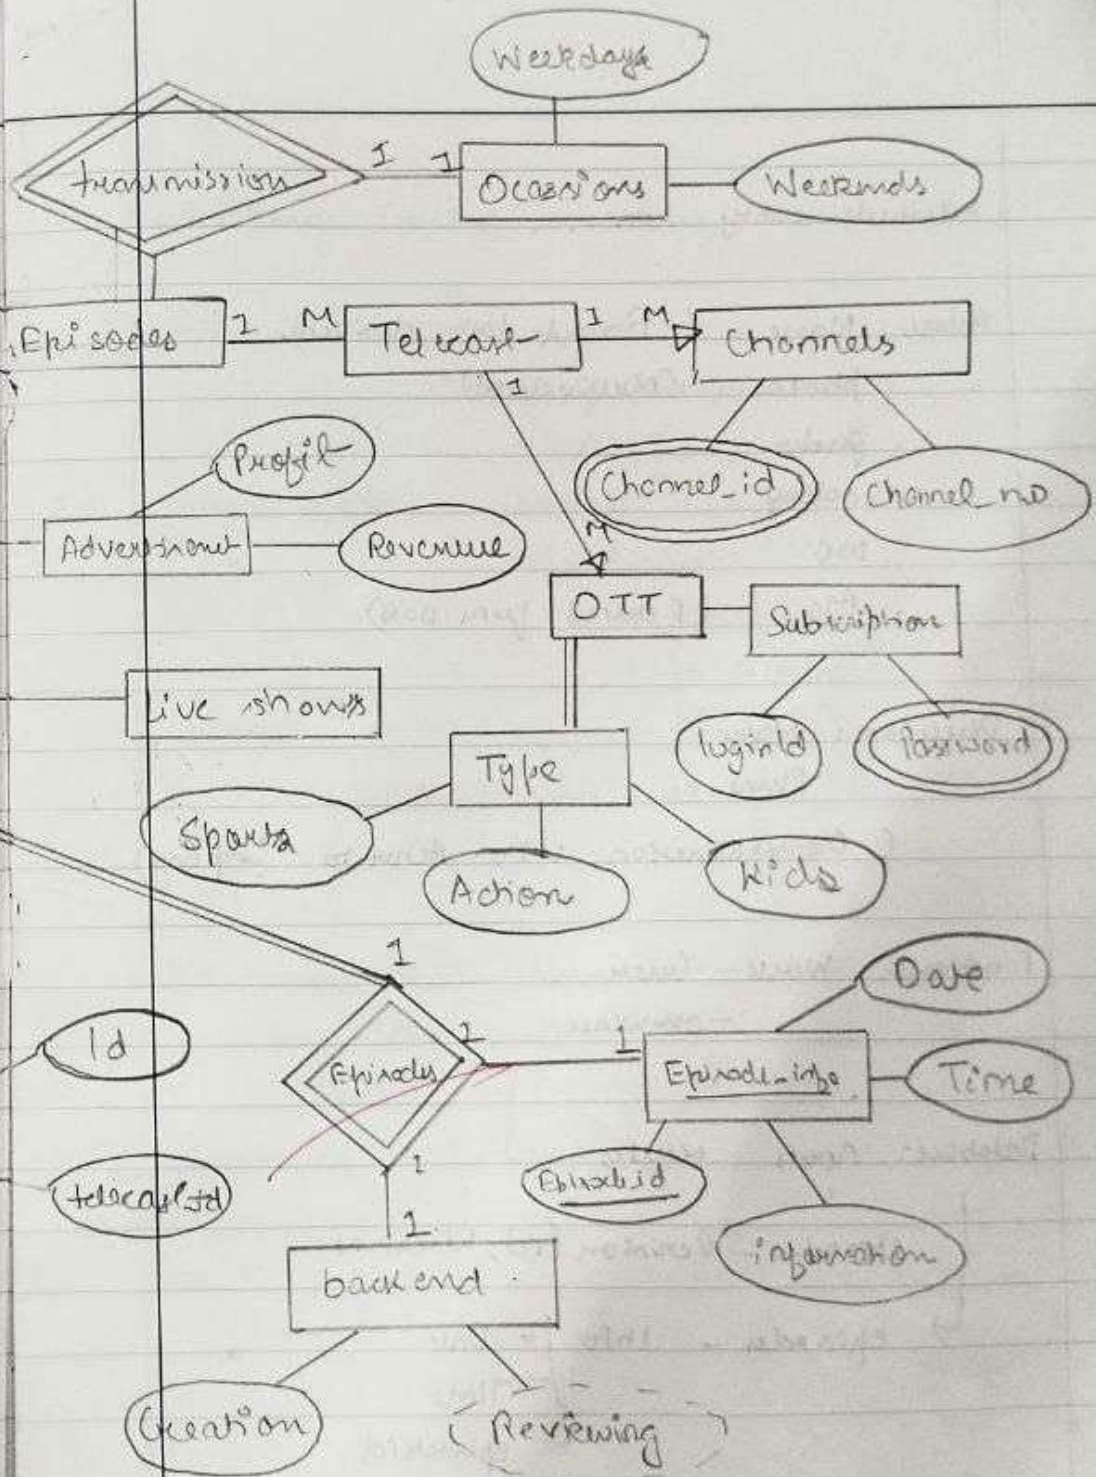 Weekdays
transmission
1 1
Ocassions
Weekends
Episodes
1 M
Telecast
1 M
Channels
1
Profit
Channel_id
Channel_no
Advertisment
Revenue
M
OTT
Subscription
Live shows
loginId
Password
Type
Sports
Action
Kids
1
Date
Id
Episodes
1 1
Episode_info
Time
telecastId
1
Episodeid
1
information
backend
Creation
(Reviewing)